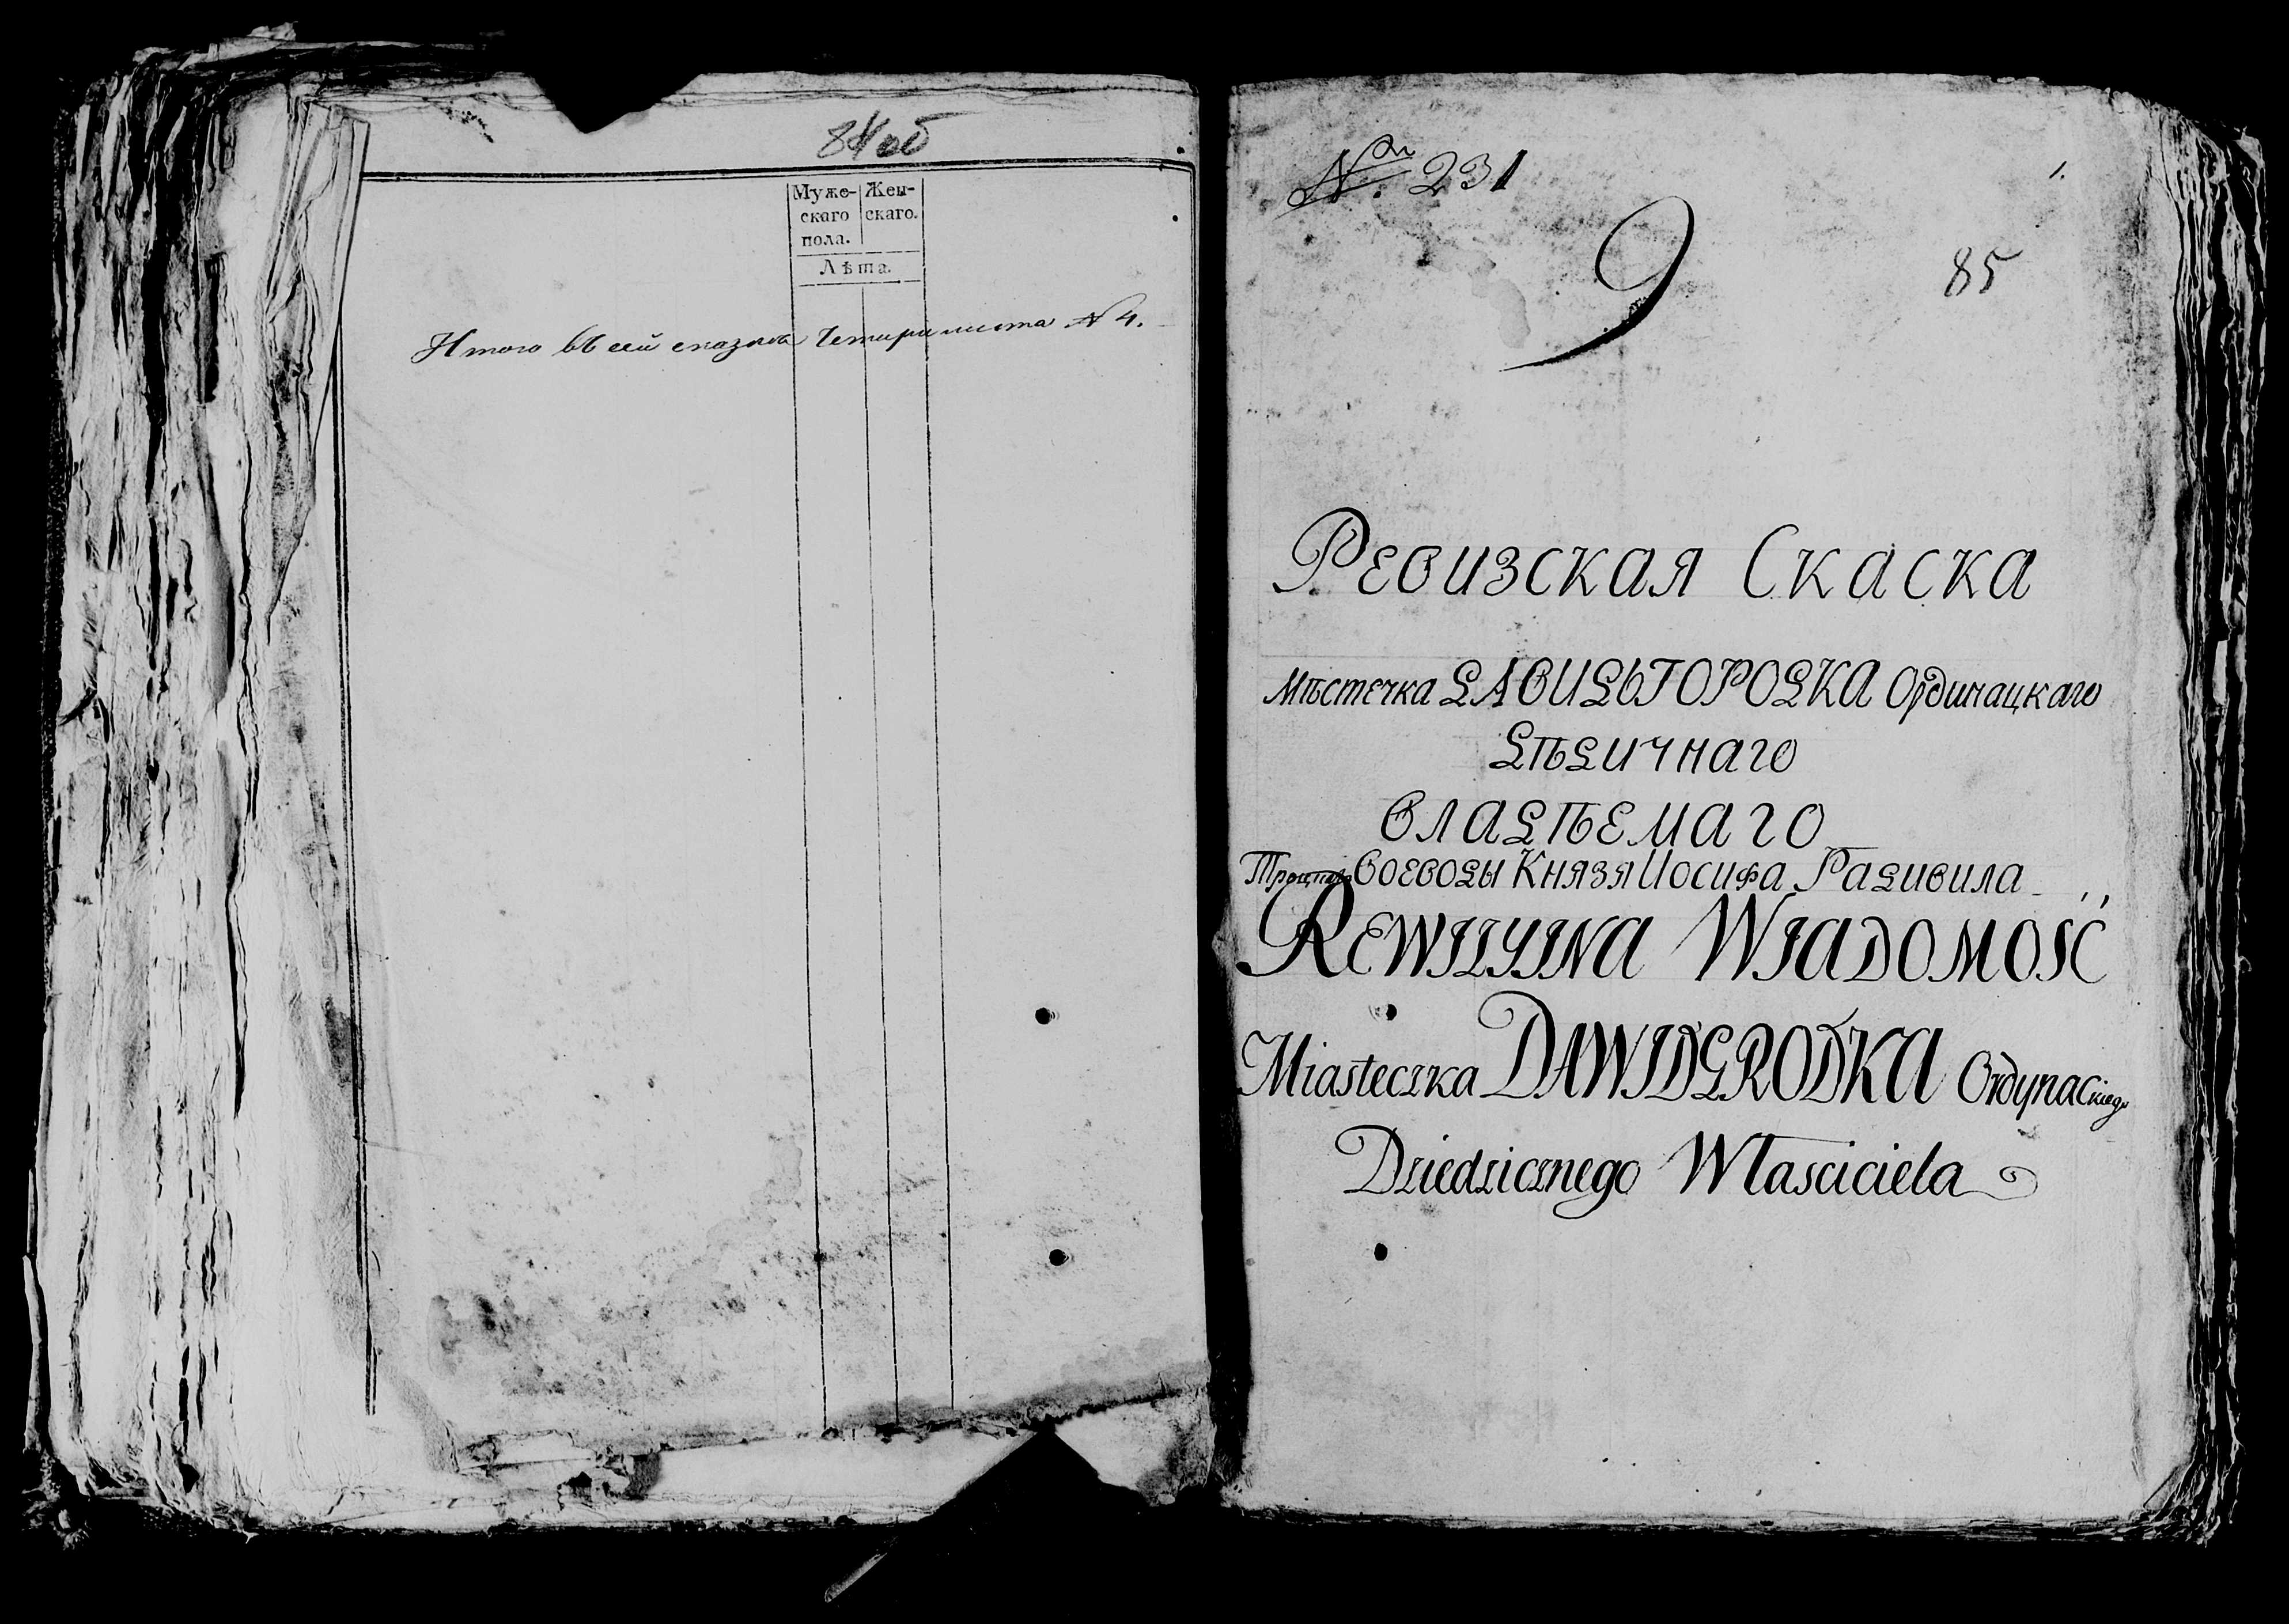 84об
Муже- Жен-
скаго скаго.
пола.
Лѣта.
Итого въ сей сказки Четыри листа № 4.
№ 231
1.
9
85
Ревизская Скаска
Мѣстечка ДАВИДЬГОРОДКА Ординацкаго
Дѣдичнаго
Владѣемаго
Воеводы Князя Иосифа Радивила
REWIZYINA WIADOMOŚĆ
Miasteczka DAWIDGRODKA Ordynackiego
Dziedzicznego Własciciela